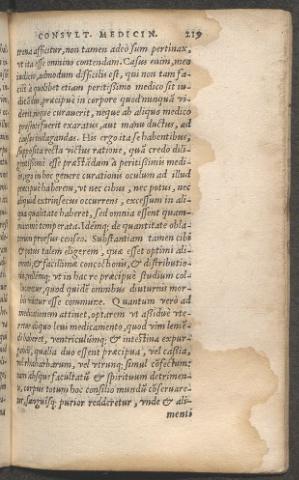 CONSVLT. MEDICIN. 219
arena afficitur, non tamen adeò sum pertinax,
vt ita esse omnino contendam. Casus enim, meo
iudicio, admodum difficilis est, qui non tam fa-
cilè à quolibet etiam peritissimo medico sit iu-
dicādus, præcipuè in corpore quod nunquā vi-
derit, neque curauerit, neque ab aliquo medico
præsente fuerit exaratus, aut manu ductus, ad
causas indagandas. His ergo ita se habentibus,
supposita recta victus ratione, quā credo dili-
gentissimè esse præstādam à peritissimis medi-
in hoc genere curationis oculum ad illud
præcipuè haberem, vt nec cibus, nec potus, nec
aliquid extrinsecus occurrens, excessum in ali-
qua qualitate haberet, sed omnia essent quam-
temperata. Idémq; de quantitate obla-
prorsus censeo. Substantiam tamen cibi
& potus talem eligerem, quæ esset optimi ali-
menti, & facillimæ concoctionis, & distributio-
nis, vt in hac re præcipuè studium col-
locetur, quod quidē omnibus diuturnis mor-
bis videtur esse commune. Quantum verò ad
medicationem attinet, optarem vt assiduè vte-
retur aliquo leui medicamento, quod vim leniē-
di haberet, ventriculúmq; & intestina expur-
gandi, qualia duo essent præcipua, vel cassia,
vel rhabarbarum, vel vtrunq; simul cōfectum:
nam absque facultatū & spirituum detrimen-
to, corpus totum hoc consilio mundū cōseruare-
tur, sanguisq; purior redderetur, vnde & ali-
menti